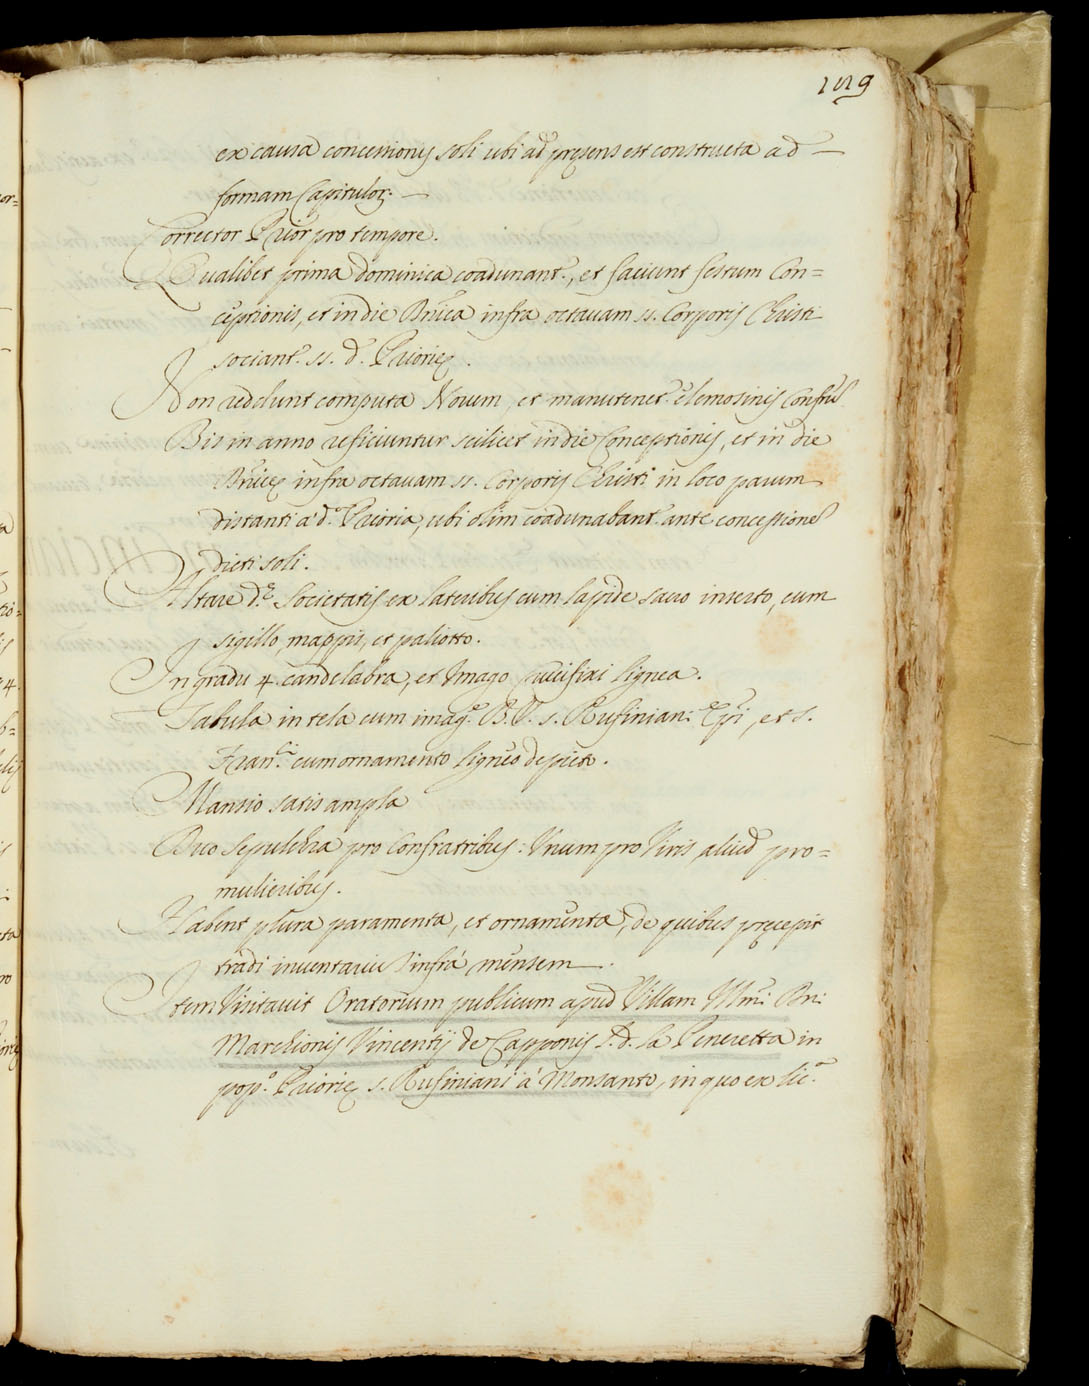 129
ex causa concessionis soli ubi ad pręsens est constructa ad —
formam Capituloꝝ. —
Corrector Prior pro tempore.
Qualibet prima dominica coadunant., et faciunt festum Con=
ceptionis, et in die Dnica infra octavam ss. Corporis Christi
sociant. ss. d. Priorię.
Non reddunt computa Novum, et manutenet elemosinis Confrũ
Bis in anno reficiuntur scilicet in die Conceptionis, et in die
Dnicę infra octavam ss. Corporis Christi in loco parum
distanti a' d.ª Prioria, ubi olim coadunabant. ante concessione
dicti soli.
Altare d.ę Societatis ex lateribus cum lapide sacro inserto, cum
sigillo, mappis, et paliotto.
In gradu 4. candelabra, et Imago Crucifixi lignea.
Tabula in tela cum imag.e B.V. s. Rufinian: Epi, et s.
Fran.ci cum ornamento ligneo depict.
Mansio satis ampla
Duo Sepulchra pro Confratribus: Unum pro Viris, aliud pro=
mulieribus.
Habent plura paramenta, et ornamenta, de quibus pręcepit
tradi inventariu infrà mensem —.
Item Visitavit Oratorium publicum apud Villam Illmi: Dni:
Marchionis Vincentij de Capponis s.d. la Peneretta in
pop.o Priorię s. Rufiniani à Monsanto, in quo ex lic.a